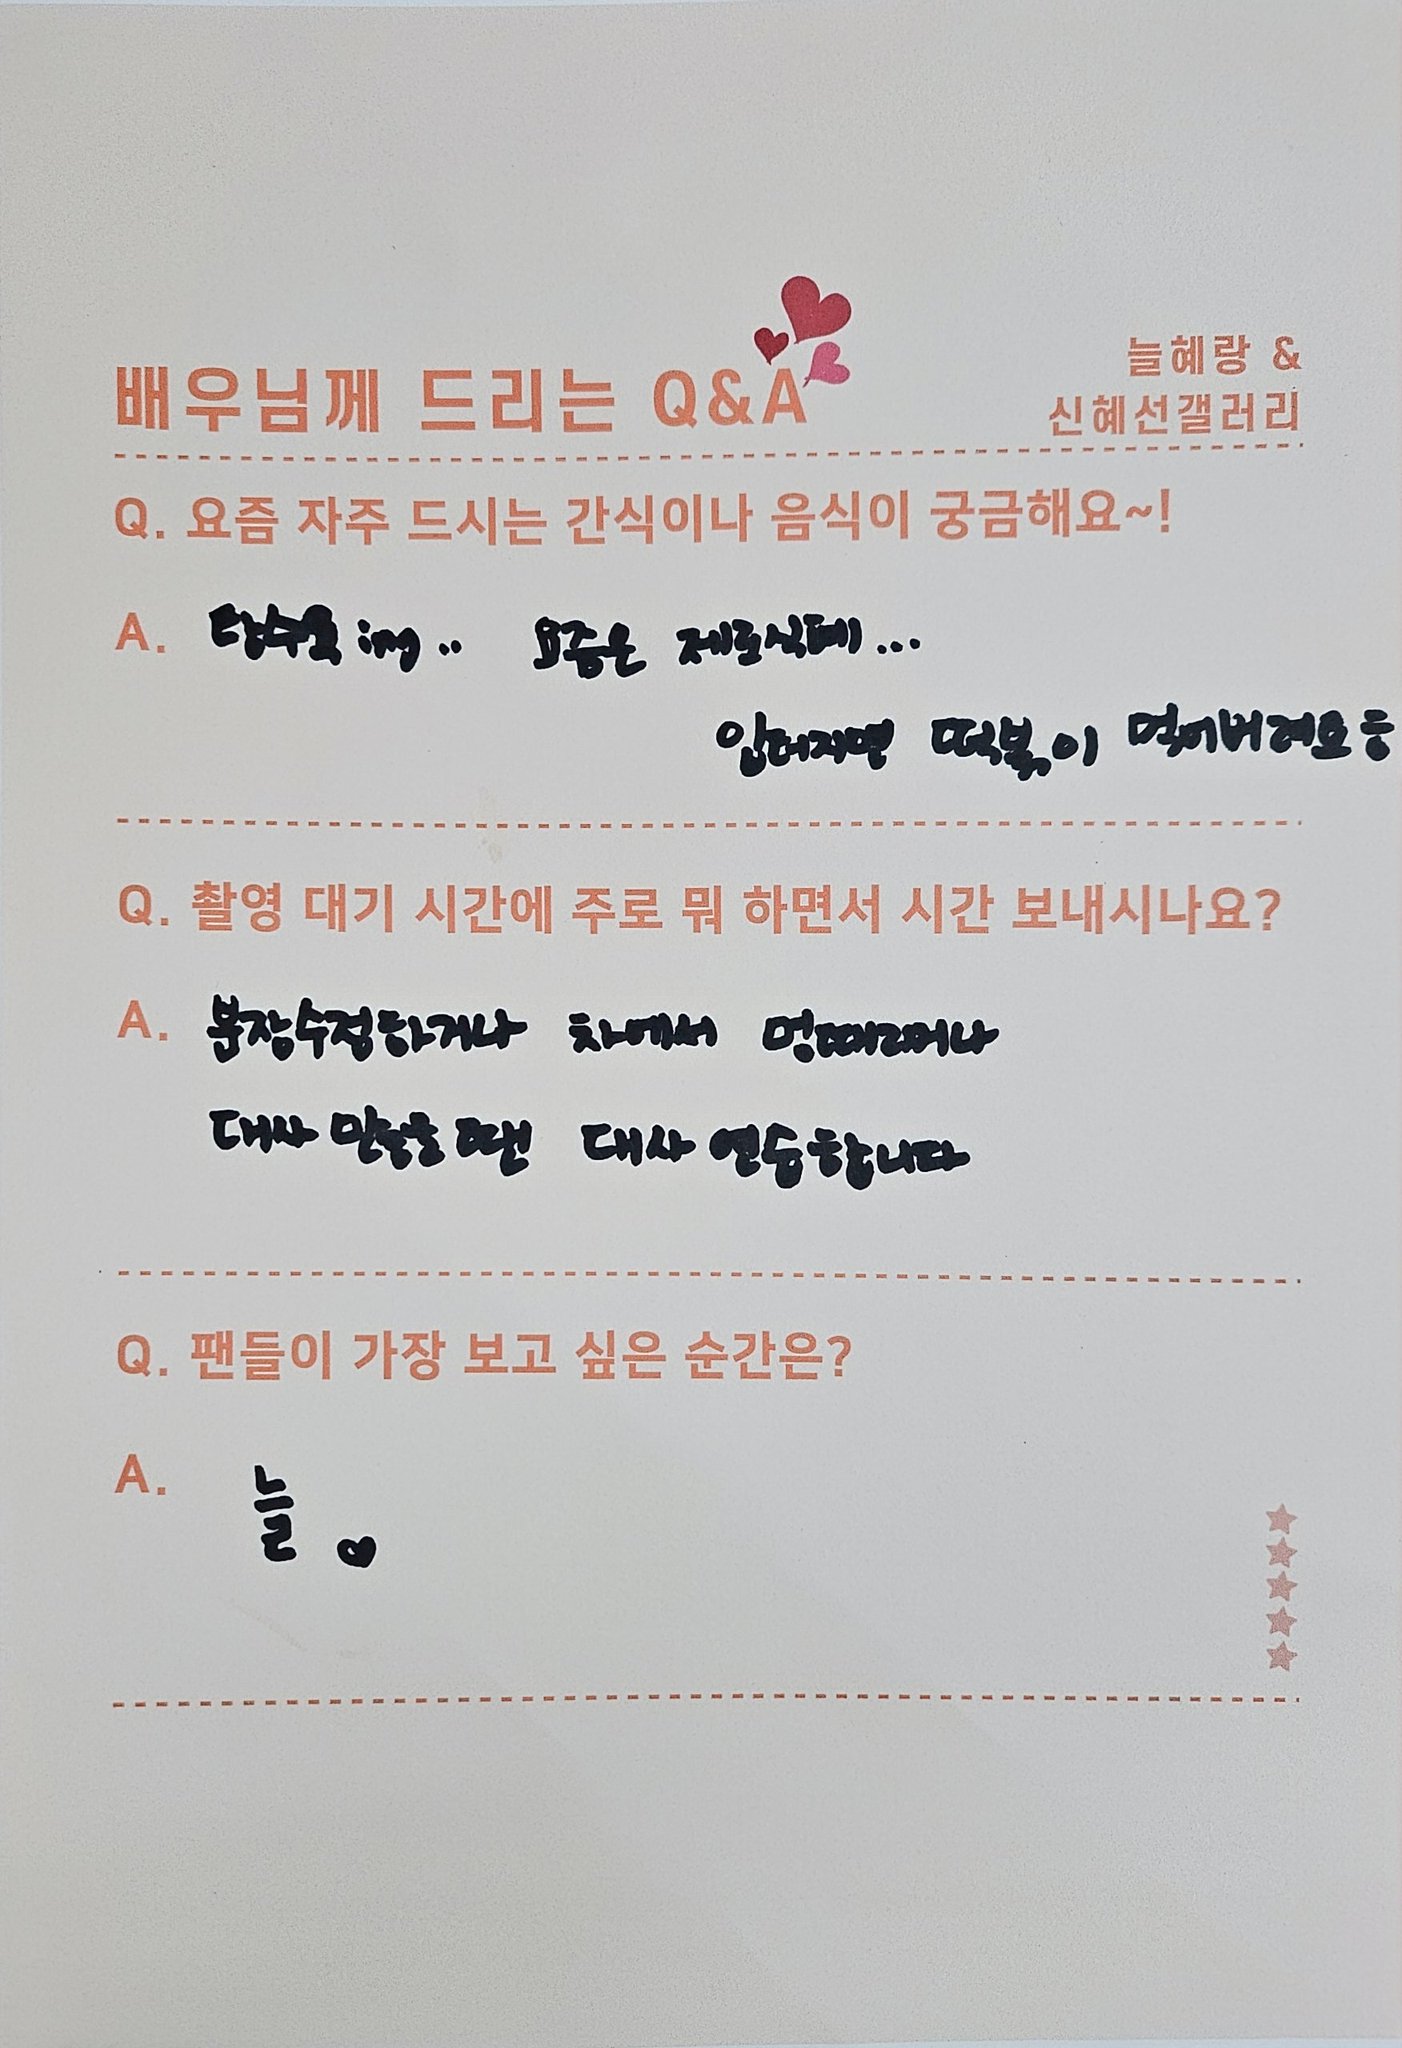 늘혜랑 &
배우님께 드리는 Q&A
신혜선갤러리
Q. 요즘 자주 드시는 간식이나 음식이 궁금해요~!
A. 탕수육 ing.. 요즘은 제로식데...
입터지면 떡볶이 먹어버려요ㅎ
Q. 촬영 대기 시간에 주로 뭐 하면서 시간 보내시나요?
A. 분장수정하거나 차에서 멍때리거나
대사 많을땐 대사 연습합니다
Q. 팬들이 가장 보고 싶은 순간은?
A. 늘 ♡